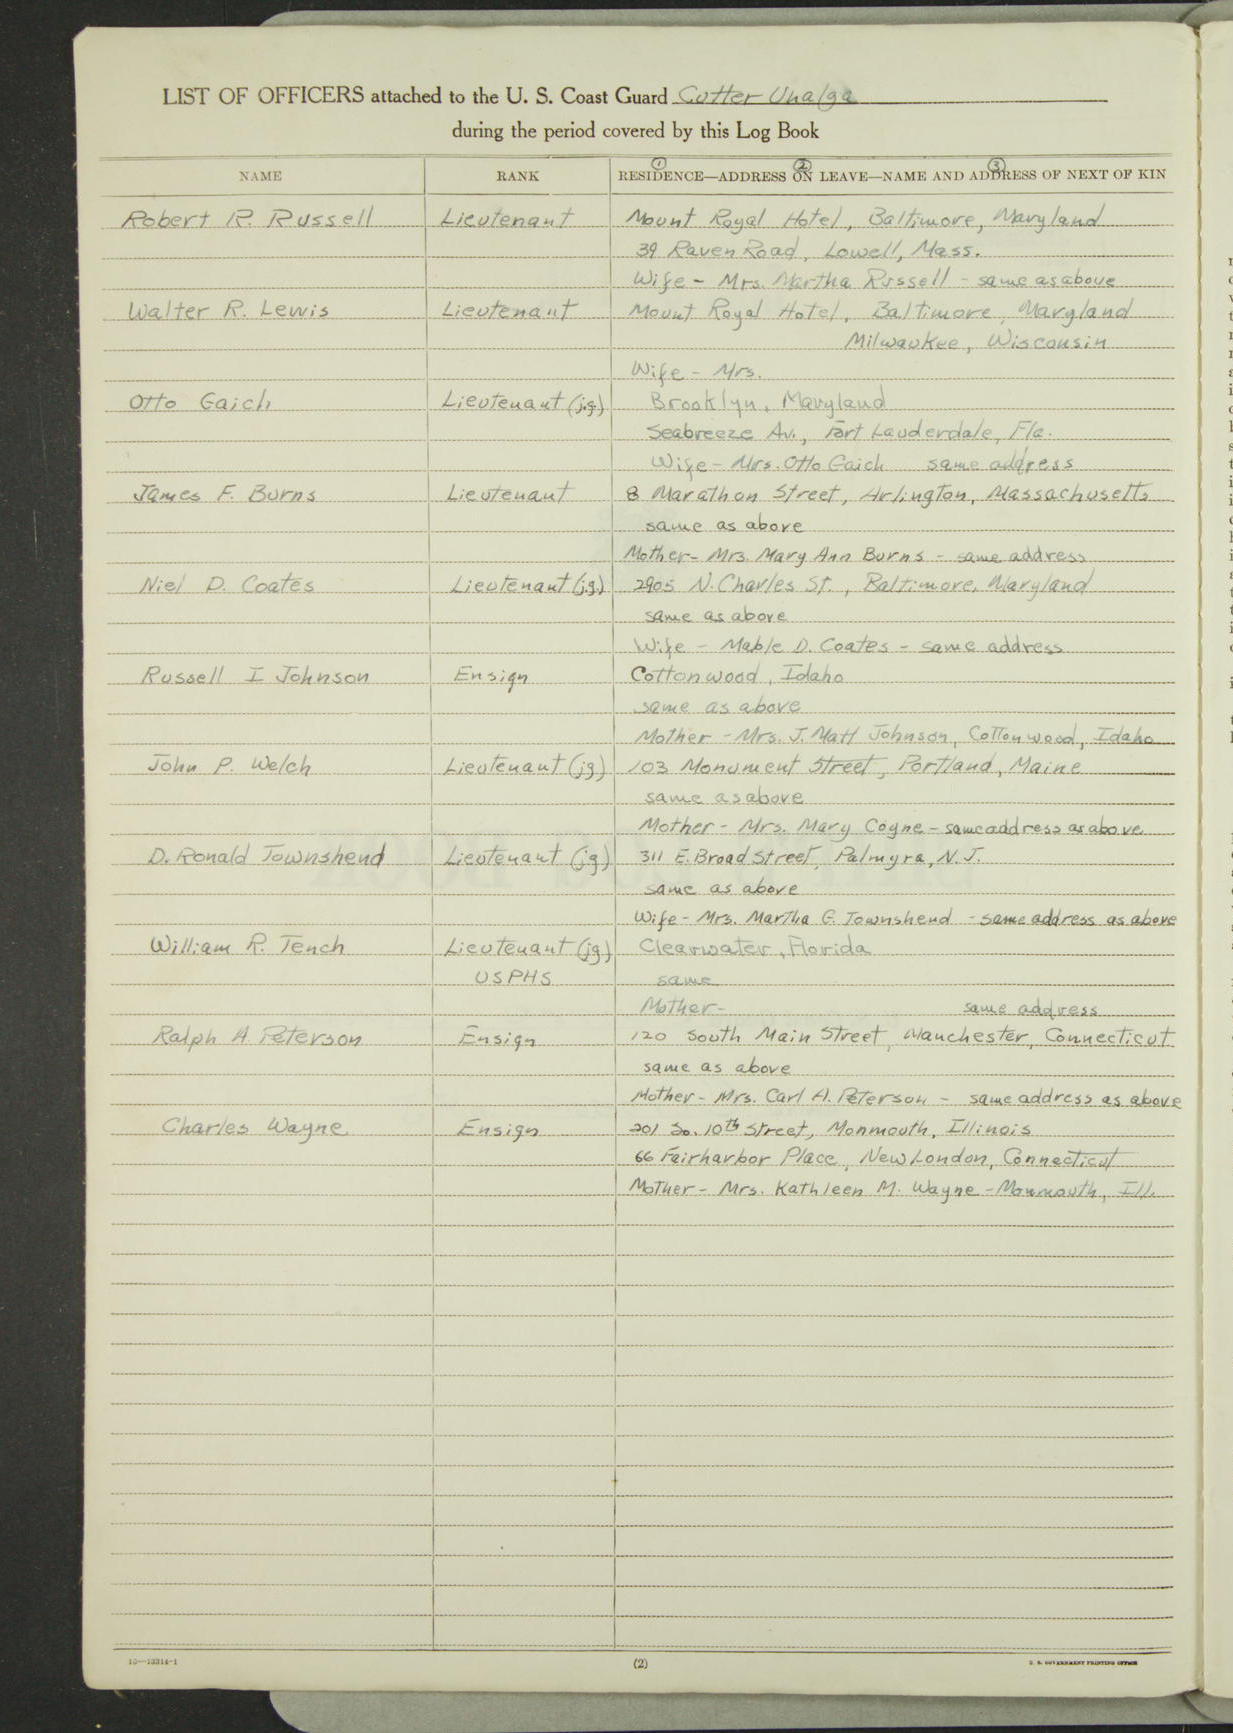 LIST OF OFFICERS attached to the U. S. Coast Guard Cutter Unalga
during the period covered by this Log Book
NAME RANK RESIDENCE—ADDRESS ON LEAVE—NAME AND ADDRESS OF NEXT OF KIN
1 2 3
Robert R. Russell Lieutenant Mount Royal Hotel, Baltimore, Maryland
39 Raven Road, Lowell, Mass.
Wife - Mrs. Martha Russell - same as above
Walter R. Lewis Lieutenant Mount Royal Hotel, Baltimore, Maryland
Milwaukee, Wisconsin
Wife - Mrs.
Otto Gaich Lieutenant (j.g.) Brooklyn, Maryland
Seabreeze Av., Fort Lauderdale, Fla.
Wife - Mrs. Otto Gaich same address
James F. Burns Lieutenant 8 Marathon Street, Arlington, Massachusetts
same as above
Mother - Mrs. Mary Ann Burns - same address
Niel D. Coates Lieutenant (j.g.) 2905 N. Charles St., Baltimore, Maryland
same as above
Wife - Mable D. Coates - same address
Russell I Johnson Ensign Cottonwood, Idaho
same as above
Mother - Mrs. J. Matt Johnson, Cottonwood, Idaho
John P. Welch Lieutenant (jg) 103 Monument Street, Portland, Maine
same as above
Mother - Mrs. Mary Coyne - same address as above
D. Ronald Townshend Lieutenant (jg) 311 E. Broad Street, Palmyra, N. J.
same as above
Wife - Mrs. Martha G. Townshend - same address as above
William R. Tench Lieutenant (jg) Clearwater, Florida
USPHS same
Mother - same address
Ralph A Peterson Ensign 120 South Main Street, Manchester, Connecticut
same as above
Mother - Mrs. Carl A. Peterson - same address as above
Charles Wayne Ensign 201 So. 10th Street, Monmouth, Illinois
66 Fairharbor Place, New London, Connecticut
Mother - Mrs. Kathleen M. Wayne - Monmouth, Ill.
(2) U. S. GOVERNMENT PRINTING OFFICE